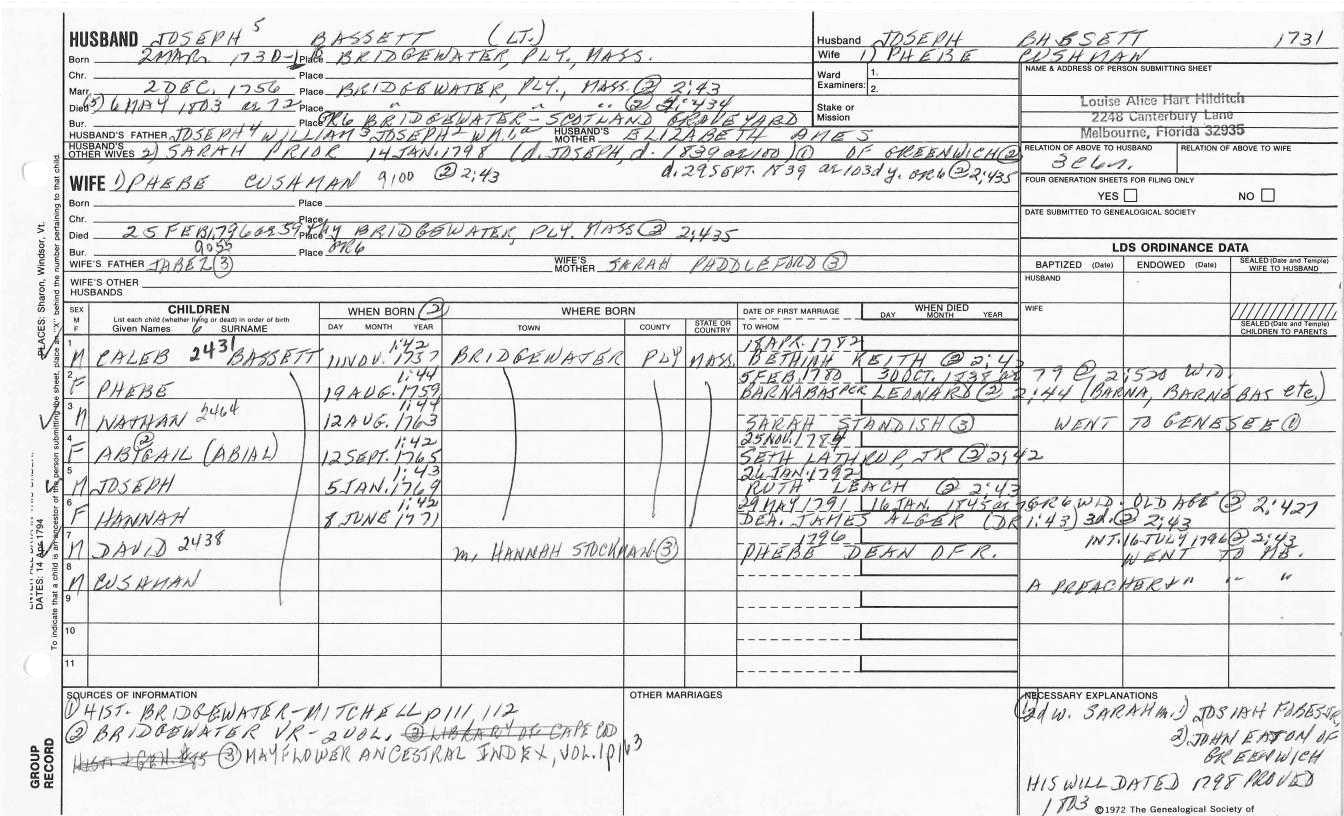 HUSBAND JOSEPH 5 BASSETT (LT.)
Born 2 MAR. 1730-1 Place BRIDGEWATER, PLY., MASS.
Chr. Place
Marr. 2 DEC. 1756 Place BRIDGEWATER, PLY., MASS. ② 2:43
Died (5) 6 MAY 1803 ae 72 Place " " " ② 2:434
Bur. Place GR6 BRIDGEWATER-SCOTLAND GRAVEYARD
HUSBAND'S FATHER JOSEPH 4 WILLIAM 3 JOSEPH 2 WM. 1 HUSBAND'S MOTHER ELIZABETH AMES
HUSBAND'S OTHER WIVES 2) SARAH PRIOR 14 JAN. 1798 (d. JOSEPH, d. 1839 ae 100) ① OF GREENWICH ②
d. 29 SEPT. 1839 ae 103 dy. GR6 ② 2:435
WIFE 1) PHEBE CUSHMAN 9100 ② 2:43
Born Place
Chr. Place
Died 25 FEB. 1796 ae 59 Place BRIDGEWATER, PLY. MASS ② 2:435
Bur. Place GR6
9055
WIFE'S FATHER JABEZ ③ WIFE'S MOTHER SARAH PADDLEFORD ③
WIFE'S OTHER HUSBANDS
Husband JOSEPH BASSETT 1731
Wife 1) PHEBE CUSHMAN
Ward Examiners: 1.
2.
Stake or Mission
NAME & ADDRESS OF PERSON SUBMITTING SHEET
Louise Alice Hart Hilditch
2248 Canterbury Lane
Melbourne, Florida 32935
RELATION OF ABOVE TO HUSBAND RELATION OF ABOVE TO WIFE
FOUR GENERATION SHEETS FOR FILING ONLY
YES NO
DATE SUBMITTED TO GENEALOGICAL SOCIETY
LDS ORDINANCE DATA
BAPTIZED (Date) ENDOWED (Date) SEALED (Date and Temple) WIFE TO HUSBAND
HUSBAND
WIFE
SEALED (Date and Temple) CHILDREN TO PARENTS
SEX M F CHILDREN WHEN BORN ② WHERE BORN DATE OF FIRST MARRIAGE WHEN DIED
List each child (whether living or dead) in order of birth
Given Names 6 SURNAME DAY MONTH YEAR TOWN COUNTY STATE OR COUNTRY TO WHOM DAY MONTH YEAR
1:42 18 APR. 1782
1 M CALEB 2431 BASSETT 11 NOV. 1757 BRIDGEWATER PLY MASS. BETHIAH KEITH ② 2:42
1:44 5 FEB. 1780 30 OCT. 1838 ae 79 ② 2:528 WID.
2 F PHEBE 19 AUG. 1759 BARNABAS PER LEONARD ② 2:44 (BARNA, BARNABAS etc.)
1:44
3 M NATHAN 2464 12 AUG. 1763 SARAH STANDISH ③ WENT TO GENESEE ①
② 1:42 25 NOV. 1784
4 F ABIGAIL (ABIAL) 12 SEPT. 1765 SETH LATHROP, JR ② 2:42
1:43 26 JAN. 1792
5 M JOSEPH 5 JAN. 1769 RUTH LEACH ② 2:43
1:42 29 MAY 1791 16 JAN. 1845 ae GR6 WID. OLD AGE ② 2:427
6 F HANNAH 8 JUNE 1771 DEA. JAMES ALGER (DR 1:43) 3d. ② 2:43
1796 INT. 16 JULY 1796 ② 2:43
7 M DAVID 2438 m. HANNAH STOCKMAN ③ PHEBE DEAN OF R. WENT TO ME.
8 M CUSHMAN A PREACHER + " " "
9
10
11
SOURCES OF INFORMATION
① HIST. BRIDGEWATER-MITCHELL p 111, 112
② BRIDGEWATER VR-2 VOL. ③ LIBRARY OF CAPE COD
HIST & GEN. #85 ③ MAYFLOWER ANCESTRAL INDEX, VOL. 1 p 163
OTHER MARRIAGES
NECESSARY EXPLANATIONS
① 2d w. SARAH m. 1) JOSIAH
2) JOHN EATON OF
GREENWICH
HIS WILL DATED 1798 PROVED
1803
©1972 The Genealogical Society of
GROUP RECORD
PLACES: Sharon, Windsor, Vt.
DATES: 14 Apr 1794
To indicate that a child is an ancestor of the person submitting the sheet, place an "X" behind the number pertaining to that child